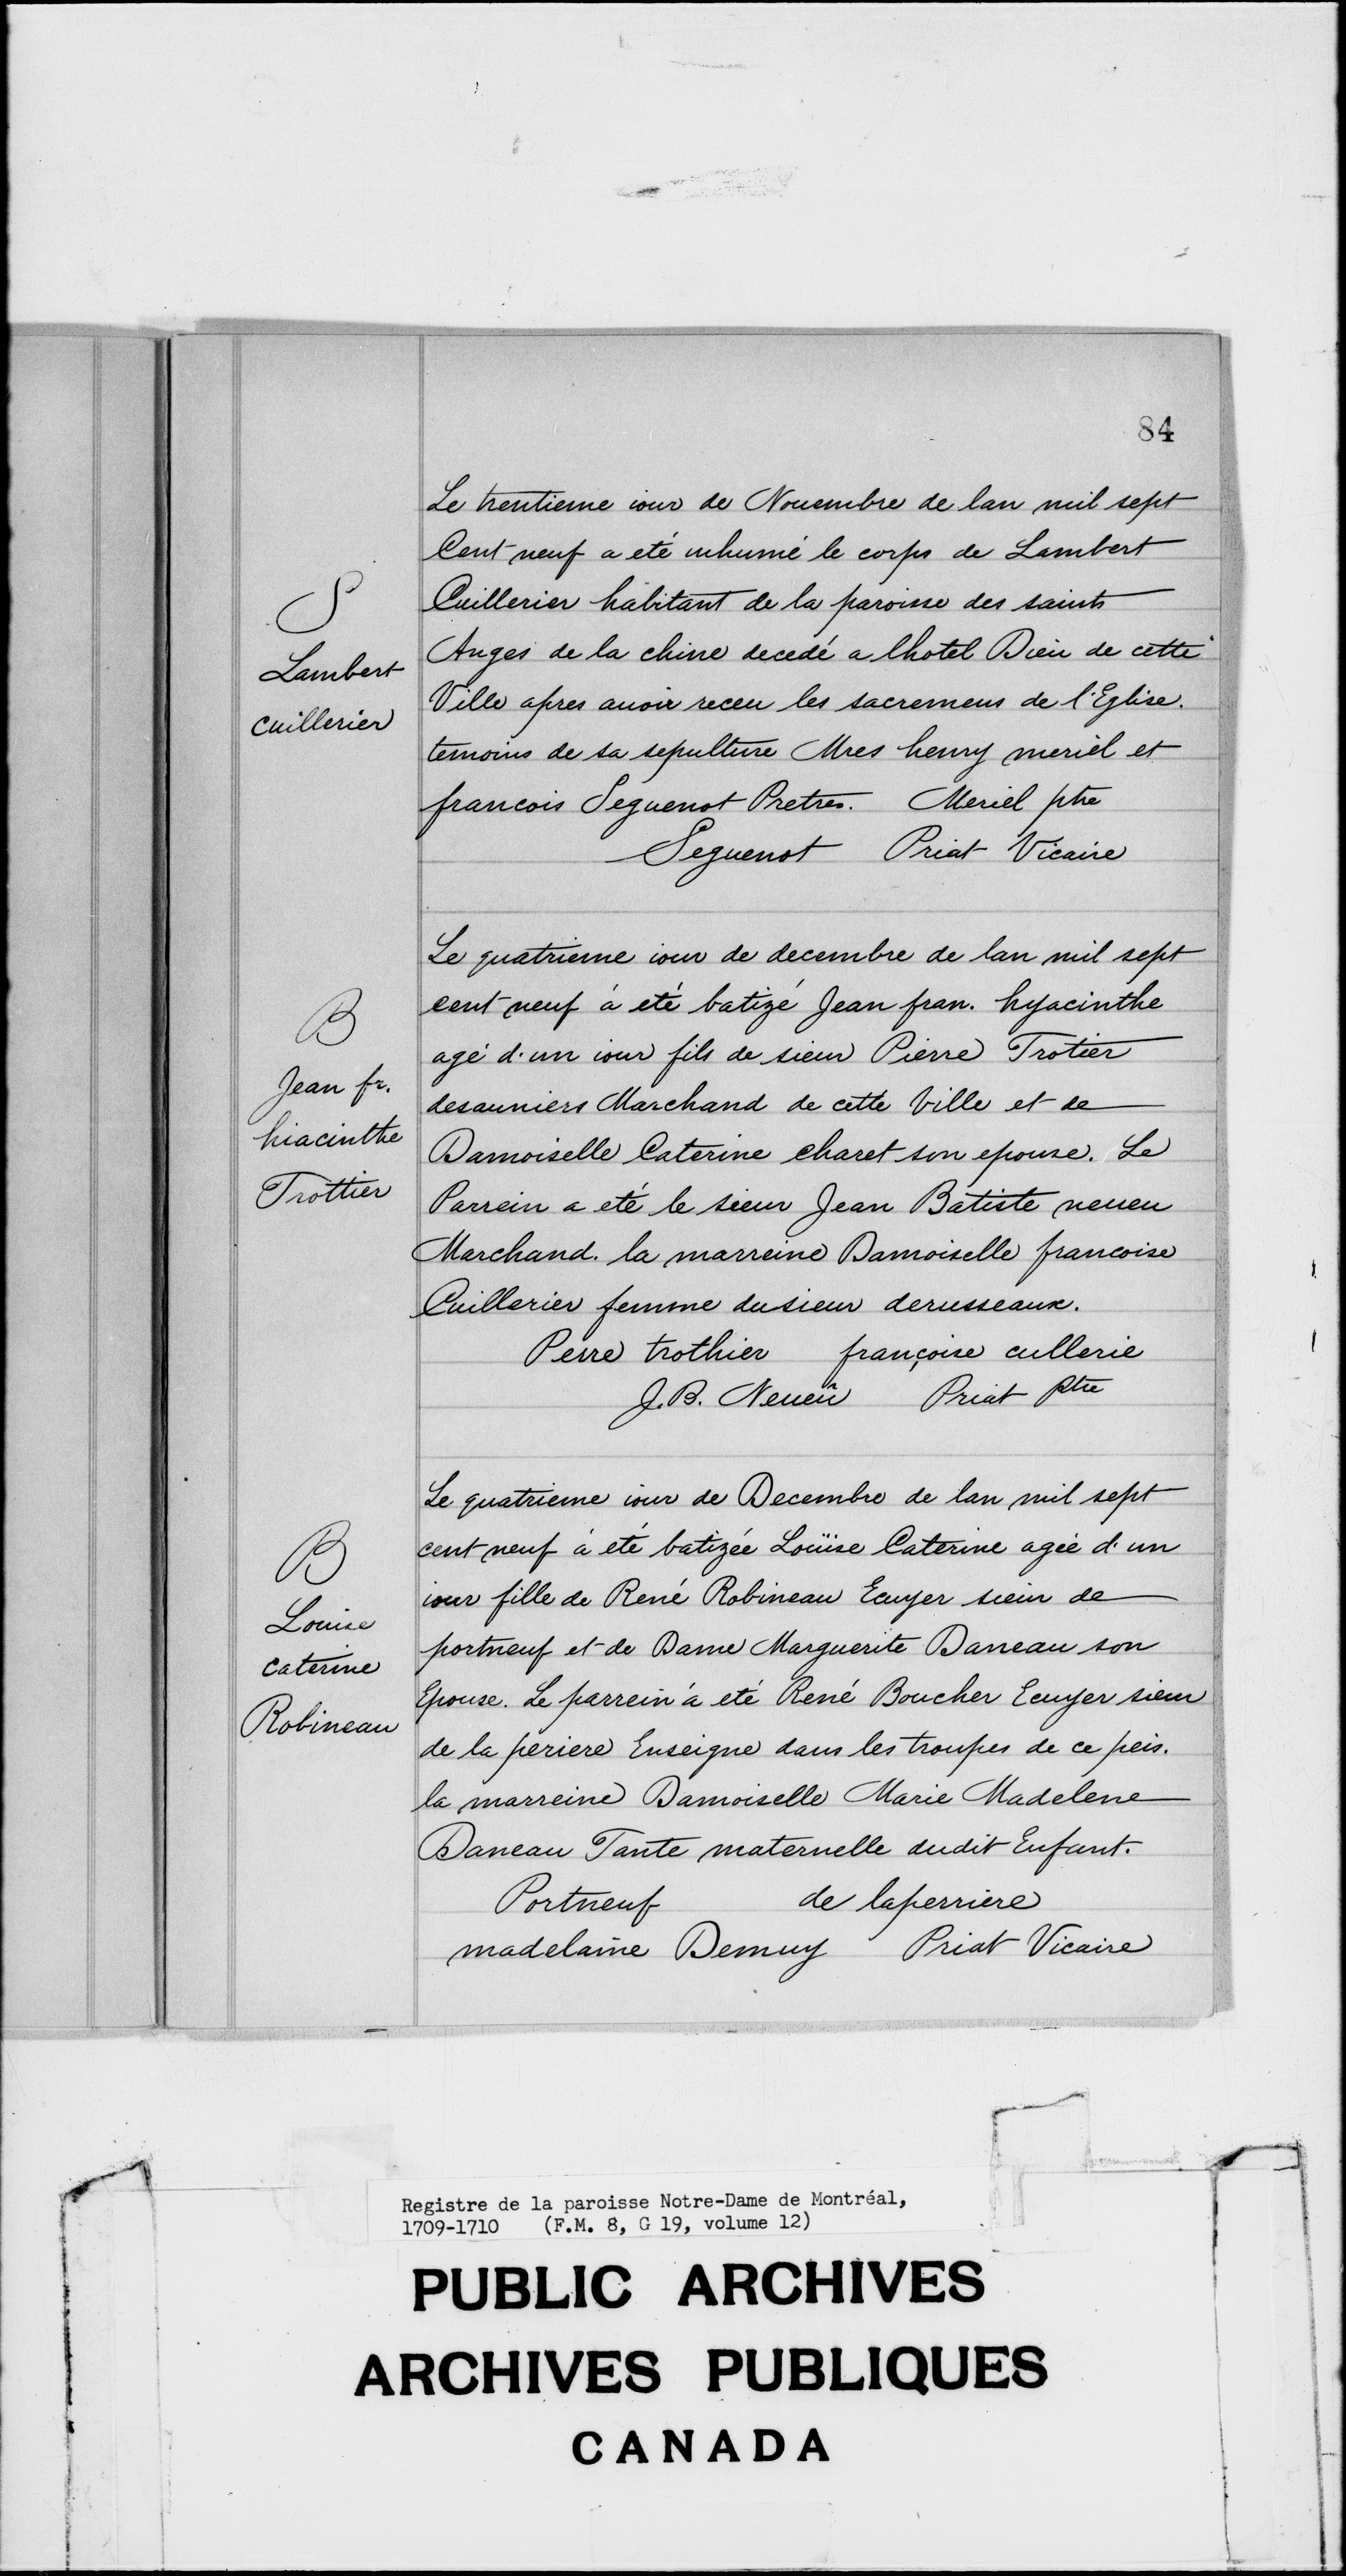 84
S
Lambert
cuillerier
Le trentieme iour de Nouembre de lan mil sept
Cent neuf a eté inhumé le corps de Lambert
Cuillerier habitant de la paroisse des saints
Anges de la chine decedé a lhotel Dieu de cette
Ville apres auoir receu les sacremens de l'Eglise.
temoins de sa sepulture Mres henry meriel et
francois Seguenot Pretres. Meriel ptre
Seguenot Priat Vicaire
B
Jean fr.
hiacinthe
Trottier
Le quatrieme iour de decembre de lan mil sept
cent neuf à eté batizé Jean fran. hyacinthe
agé d'un iour fils de sieur Pierre Trotier
desauniers Marchand de cette Ville et de
Damoiselle Caterine charet son epouse. Le
Parrein a eté le sieur Jean Batiste neueu
Marchand. la marreine Damoiselle francoise
Cuillerier femme du sieur derusseaux.
Perre trothier françoise cullerie
J. B. Neueû Priat ptre
B
Louise
caterine
Robineau
Le quatrieme iour de Decembre de lan mil sept
cent neuf à eté batizée Loüise Caterine agée d'un
iour fille de René Robineau Ecuyer sieur de
portneuf et de Dame Marguerite Daneau son
Epouse. Le parrein à eté René Boucher Ecuyer sieur
de la periere Enseigne dans les troupes de ce peis.
la marreine Damoiselle Marie Madelene
Daneau Tante maternelle dudit Enfant.
Portneuf de laperriere
madelaine Demuy Priat Vicaire
Registre de la paroisse Notre-Dame de Montréal,
1709-1710 (F.M. 8, G 19, volume 12)
PUBLIC ARCHIVES
ARCHIVES PUBLIQUES
CANADA